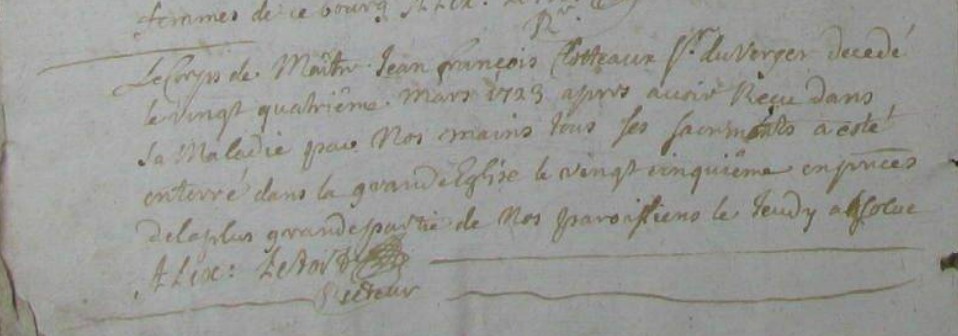 femmes de ce bourg
Rr
Le Corps de Maître Jean françois Clotteaux Sr. du Verger decedé
le vingt quatriême Mars 1723 apres avoir Receu dans
sa Maladie par Nos mains tous ses sacrments a esté
enterré dans la grande Eglise le vingt cinquiême en pnces
de la plus grande partie de Nos paroissiens le Jeudy absolue
Alix: Lebord
Recteur